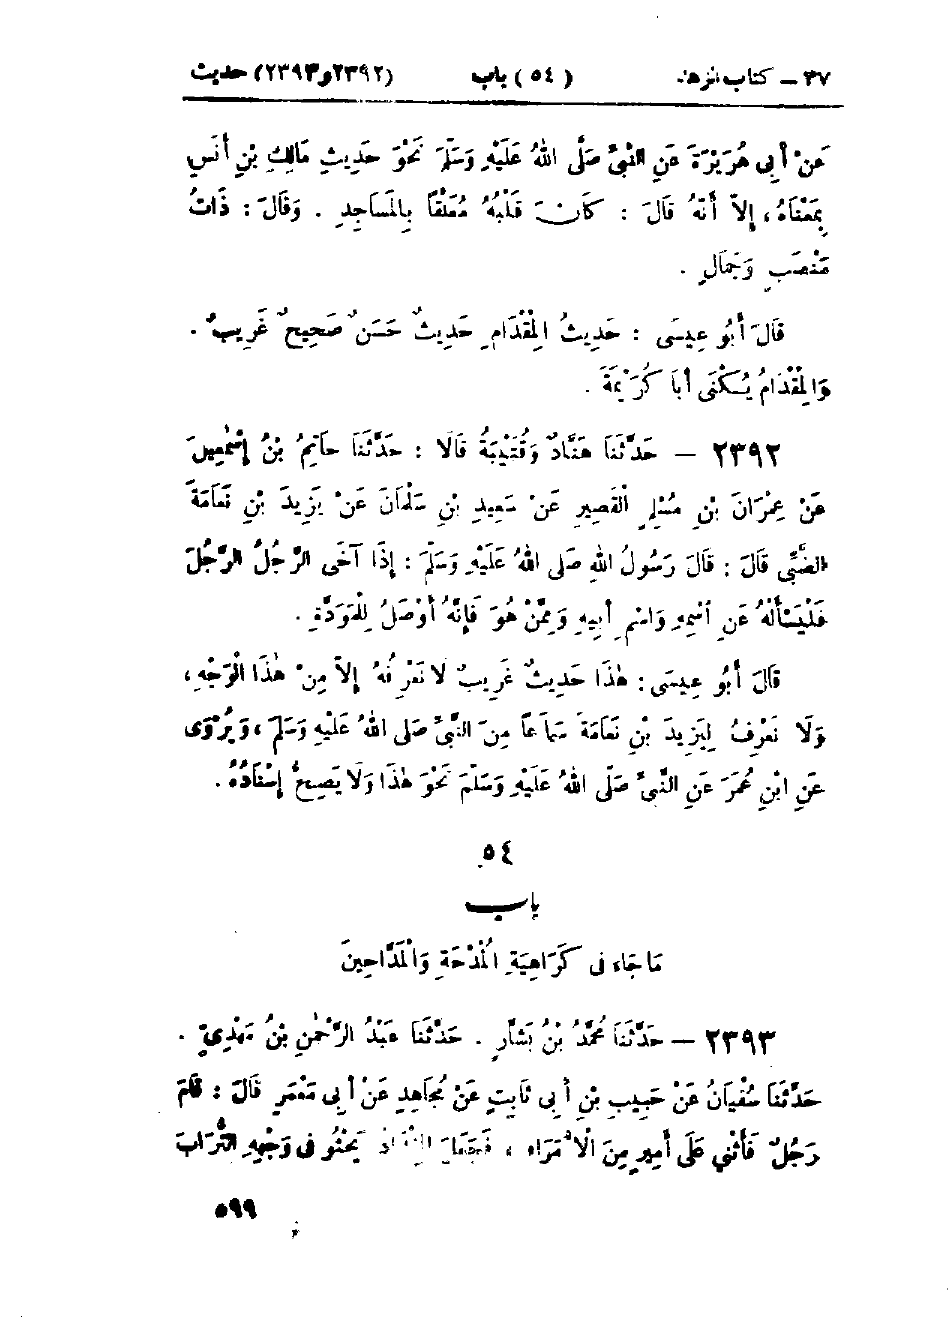 ٣٧ – كتاب الزهد (٥٤) باب (٢٣٩٢و٢٣٩٣) حديث
عَنْ أَبِى هُرَيْرَةَ عَنِ النَّبِىِّ صَلَّى اللهُ عَلَيْهِ وَسَلَّمَ نَحْوَ حَدِيثِ مَالِكِ بْنِ أَنَسٍ
بِمَعْنَاهُ، إِلاَّ أَنَّهُ قَالَ : كَانَ قَلْبُهُ مُعَلَّقًا بِالْمَسَاجِدِ . وَقَالَ : ذَاتُ
مَنْصَبٍ وَجَمَالٍ .
قَالَ أَبُو عِيسَى : حَدِيثُ الْمِقْدَامِ حَدِيثٌ حَسَنٌ صَحِيحٌ غَرِيبٌ .
وَالْمِقْدَامُ يُكْنَى أَبَا كُرَيْمَةَ .
٢٣٩٢ – حَدَّثَنَا هَنَّادٌ وَقُتَيْبَةُ قَالَا : حَدَّثَنَا حَاتِمُ بْنُ إِسْمٰعِيلَ
عَنْ عِمْرَانَ بْنِ مُسْلِمٍ الْقَصِيرِ عَنْ سَعِيدِ بْنِ سَلْمَانَ عَنْ يَزِيدَ بْنِ نَعَامَةَ
الضَّبِّىِّ قَالَ : قَالَ رَسُولُ اللهِ صَلى اللهُ عَلَيْهِ وَسَلَّمَ : إِذَا آخَى الرَّجُلُ الرَّجُلَ
فَلْيَسْأَلْهُ عَنِ اسْمِهِ وَاسْمِ أَبِيهِ وَمِمَّنْ هُوَ فَإِنَّهُ أَوْصَلُ لِلْمَوَدَّةِ .
قَالَ أَبُو عِيسَى : هٰذَا حَدِيثٌ غَرِيبٌ لَا نَعْرِفُهُ إِلاَّ مِنْ هٰذَا الْوَجْهِ،
وَلَا نَعْرِفُ لِيَزِيدَ بْنِ نَعَامَةَ سَمَاعًا مِنَ النَّبِىِّ صَلى اللهُ عَلَيْهِ وَسَلَّمَ ، وَيُرْوَى
عَنِ ابْنِ عُمَرَ عَنِ النَّبِىِّ صَلَّى اللهُ عَلَيْهِ وَسَلَّمَ نَحْوَ هٰذَا وَلَا يَصِحُّ إِسْنَادُهُ .
٥٤
باب
مَا جَاءَ فى كَرَاهِيَةِ الْمُدْحَةِ وَالْمَدَّاحِينَ
٢٣٩٣ – حَدَّثَنَا مُحَمَّدُ بْنُ بَشَّارٍ . حَدَّثَنَا عَبْدُ الرَّحْمٰنِ بْنُ مَهْدِىٍّ .
حَدَّثَنَا سُفْيَانُ عَنْ حَبِيبِ بْنِ أَبِى ثَابِتٍ عَنْ مُجَاهِدٍ عَنْ أَبِى مَعْمَرٍ قَالَ : قَامَ
رَجُلٌ فَأَثْنَى عَلَى أَمِيرٍ مِنَ الْأُمَرَاءِ ، فَجَعَلَ الْمِقْدَادُ يَحْثُو فى وَجْهِهِ التُّرَابَ
٥٩٩